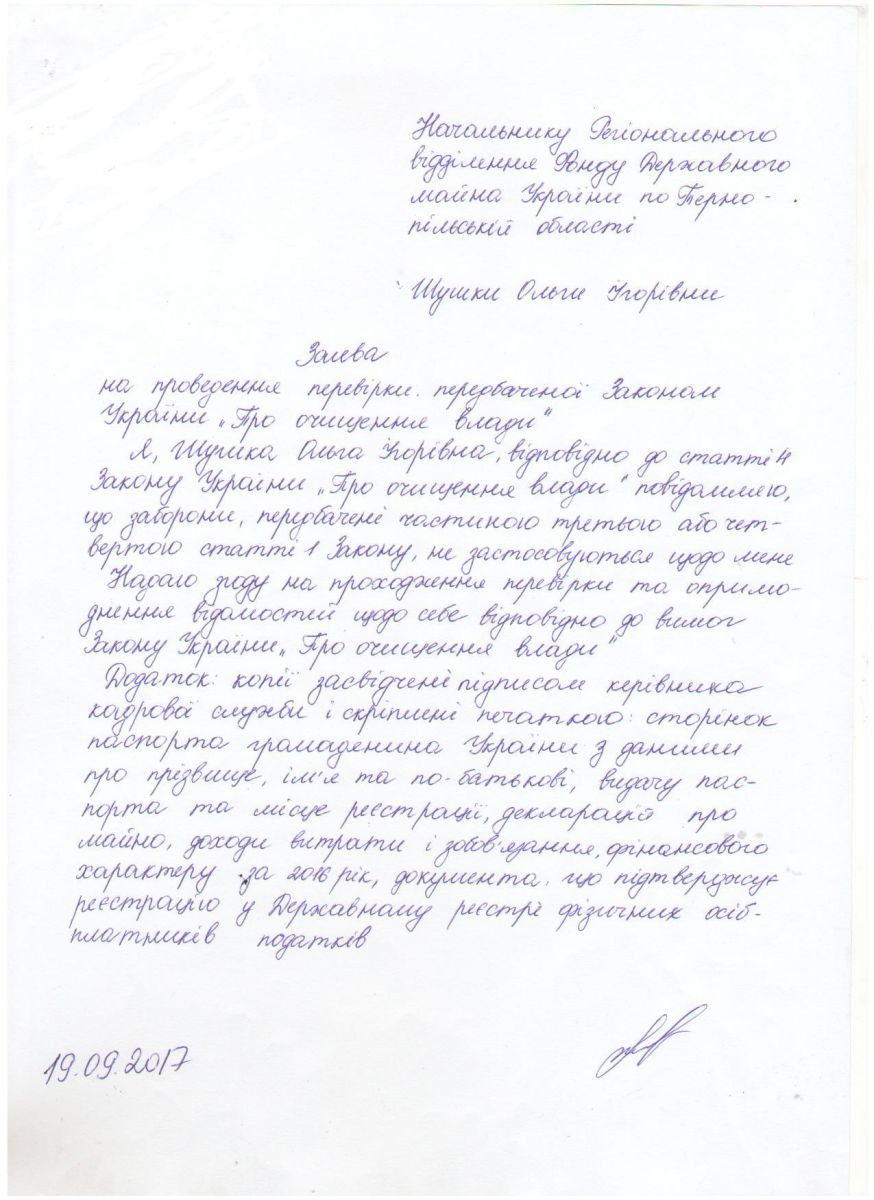 Начальнику Регіонального
відділення Фонду Державного
майна України по Терно-
пільській області
Шушки Ольги Ігорівни
Заява
на проведення перевірки. передбаченої Законом
України „Про очищення влади"
Я, Шушка Ольга Ігорівна, відповідно до статті 4
Закону України „Про очищення влади" повідомляю,
що заборони, передбачені частиною третьою або чет-
вертою статті 1 Закону, не застосовуються щодо мене
Надаю згоду на проходження перевірки та оприлю-
днення відомостей щодо себе відповідно до вимог
Закону України „Про очищення влади"
Додаток: копії засвідчені підписом керівника
кадрової служби і скріплені печаткою: сторінок
паспорта громадянина України з даними
про прізвище, ім'я та по-батькові, видачу пас-
порта та місце реєстрації, декларації про
майно, доходи витрати і зобов'язання, фінансового
характеру за 2016 рік, документа. що підтверджує
реєстрацію у Державному реєстрі фізичних осіб-
платників податків
19.09.2017